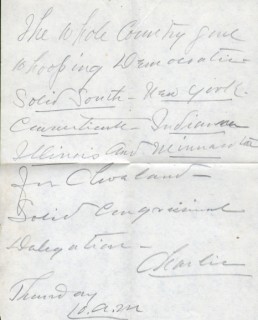 The Whole Country gone
Whooping Democratic
Solid South - New York.
Connecticut - Indiana
Illinois and Minnesota
for Cleveland -
Solid Congressional
Delegation -
Charlie
Thursday
10. a.m